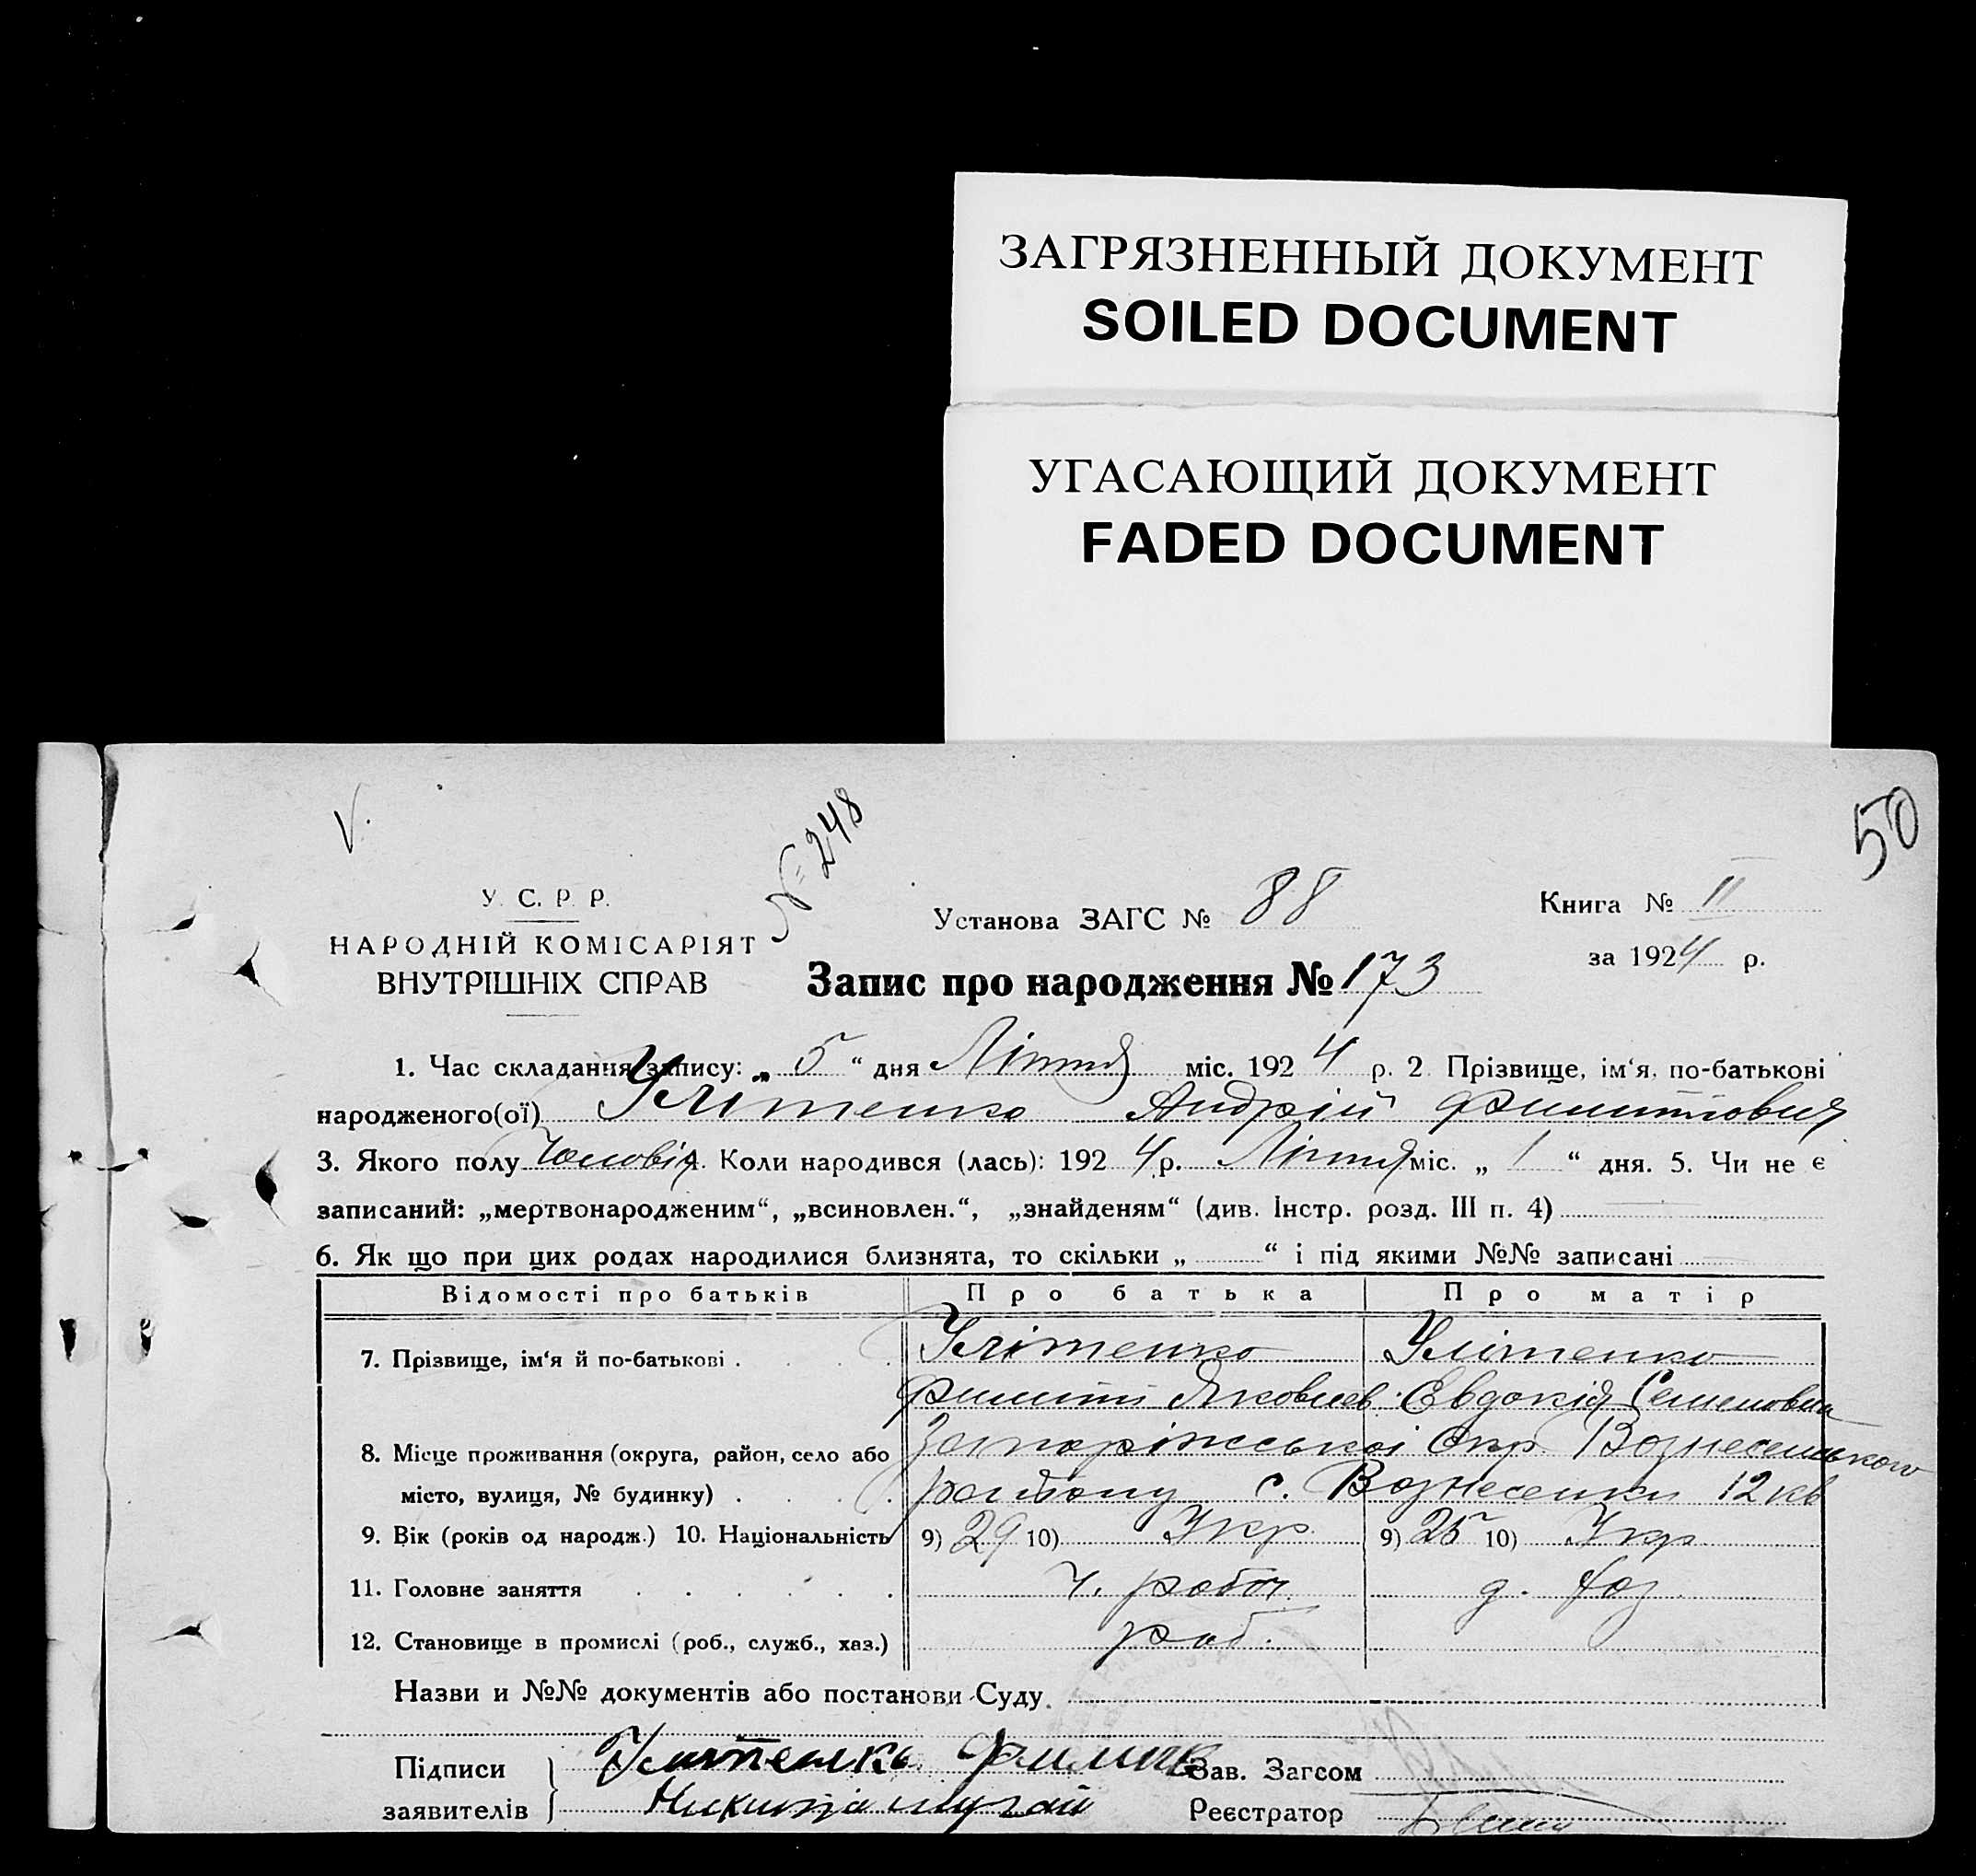 ЗАГРЯЗНЕННЫЙ ДОКУМЕНТ
SOILED DOCUMENT
УГАСАЮЩИЙ ДОКУМЕНТ
FADED DOCUMENT
50
V.
№ 248
У. С. Р. Р.
НАРОДНІЙ КОМІСАРІЯТ
ВНУТРІШНІХ СПРАВ
Установа ЗАГС № 88
Книга № II
за 1924 р.
Запис про народження № 173
1. Час складання запису: „ 5 “ дня Ліпня міс. 1924 р. 2. Прізвище, ім‘я, по-батькові
народженого(ої) Улітенко Андрій Филиппович
3. Якого полу Чоловіч. 4. Коли народився (лась): 1924 р. Ліпня міс. „ 1 “ дня. 5. Чи не є
записаний: „мертвонародженим“, „всиновлен.“, „знайденям“ (див. Інстр. розд. III п. 4)
6. Як що при цих родах народилися близнята, то скільки „ “ і під якими №№ записані
Відомості про батьків Про батька Про матір
7. Прізвище, ім‘я й по-батькові . Улітенко Улітенко
Филипп Яковлев. Евдокія Семеновна
8. Місце проживання (округа, район, село або Запоріжської Окр. Вознесенського
місто, вулиця, № будинку) . району с. Вознесенки 12 кв
9. Вік (років од народж.) 10. Національність 9) 29 10) Укр. 9) 25 10) Укр
11. Головне заняття ч. робоч. д. хоз.
12. Становище в промислі (роб., служб., хаз.) роб.
Назви и №№ документів або постанови Суду.
Підписи Улитенко Филипп Зав. Загсом
заявителів Никита Реєстратор